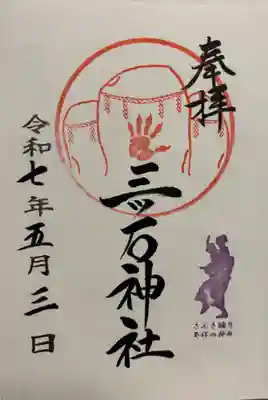 奉拝
三ツ石神社
令和七年五月三日
さんさ踊り
発祥の神社